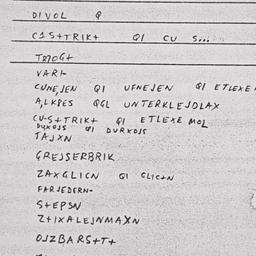 DIVOL Q
C1S+TRIK+ QI CU S...
T270G+
VARI-
CUNEJEN QI UFNEJEN QI ETLEXE
ALKPES QGL UNTERKLEJDLAX
CU-S+TRIK+ QI ETLEXE MOL
DYXOJS QI DURXOJS
TAJXN
GREJSERBRIK
ZAXGLICN QI GLIC+N
FARJEDERN-
S+EPSN
Z+IXALEJNMAXN
OJZBARS+T+